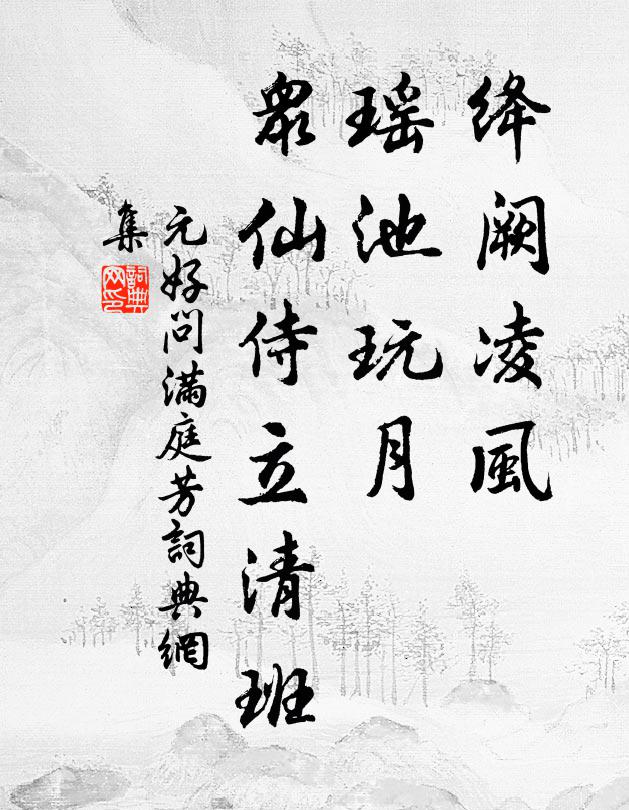 绛阙凌風
瑶池玩月
眾仙侍立清班
元好问滿庭芳詞典網
集
詞典
网印